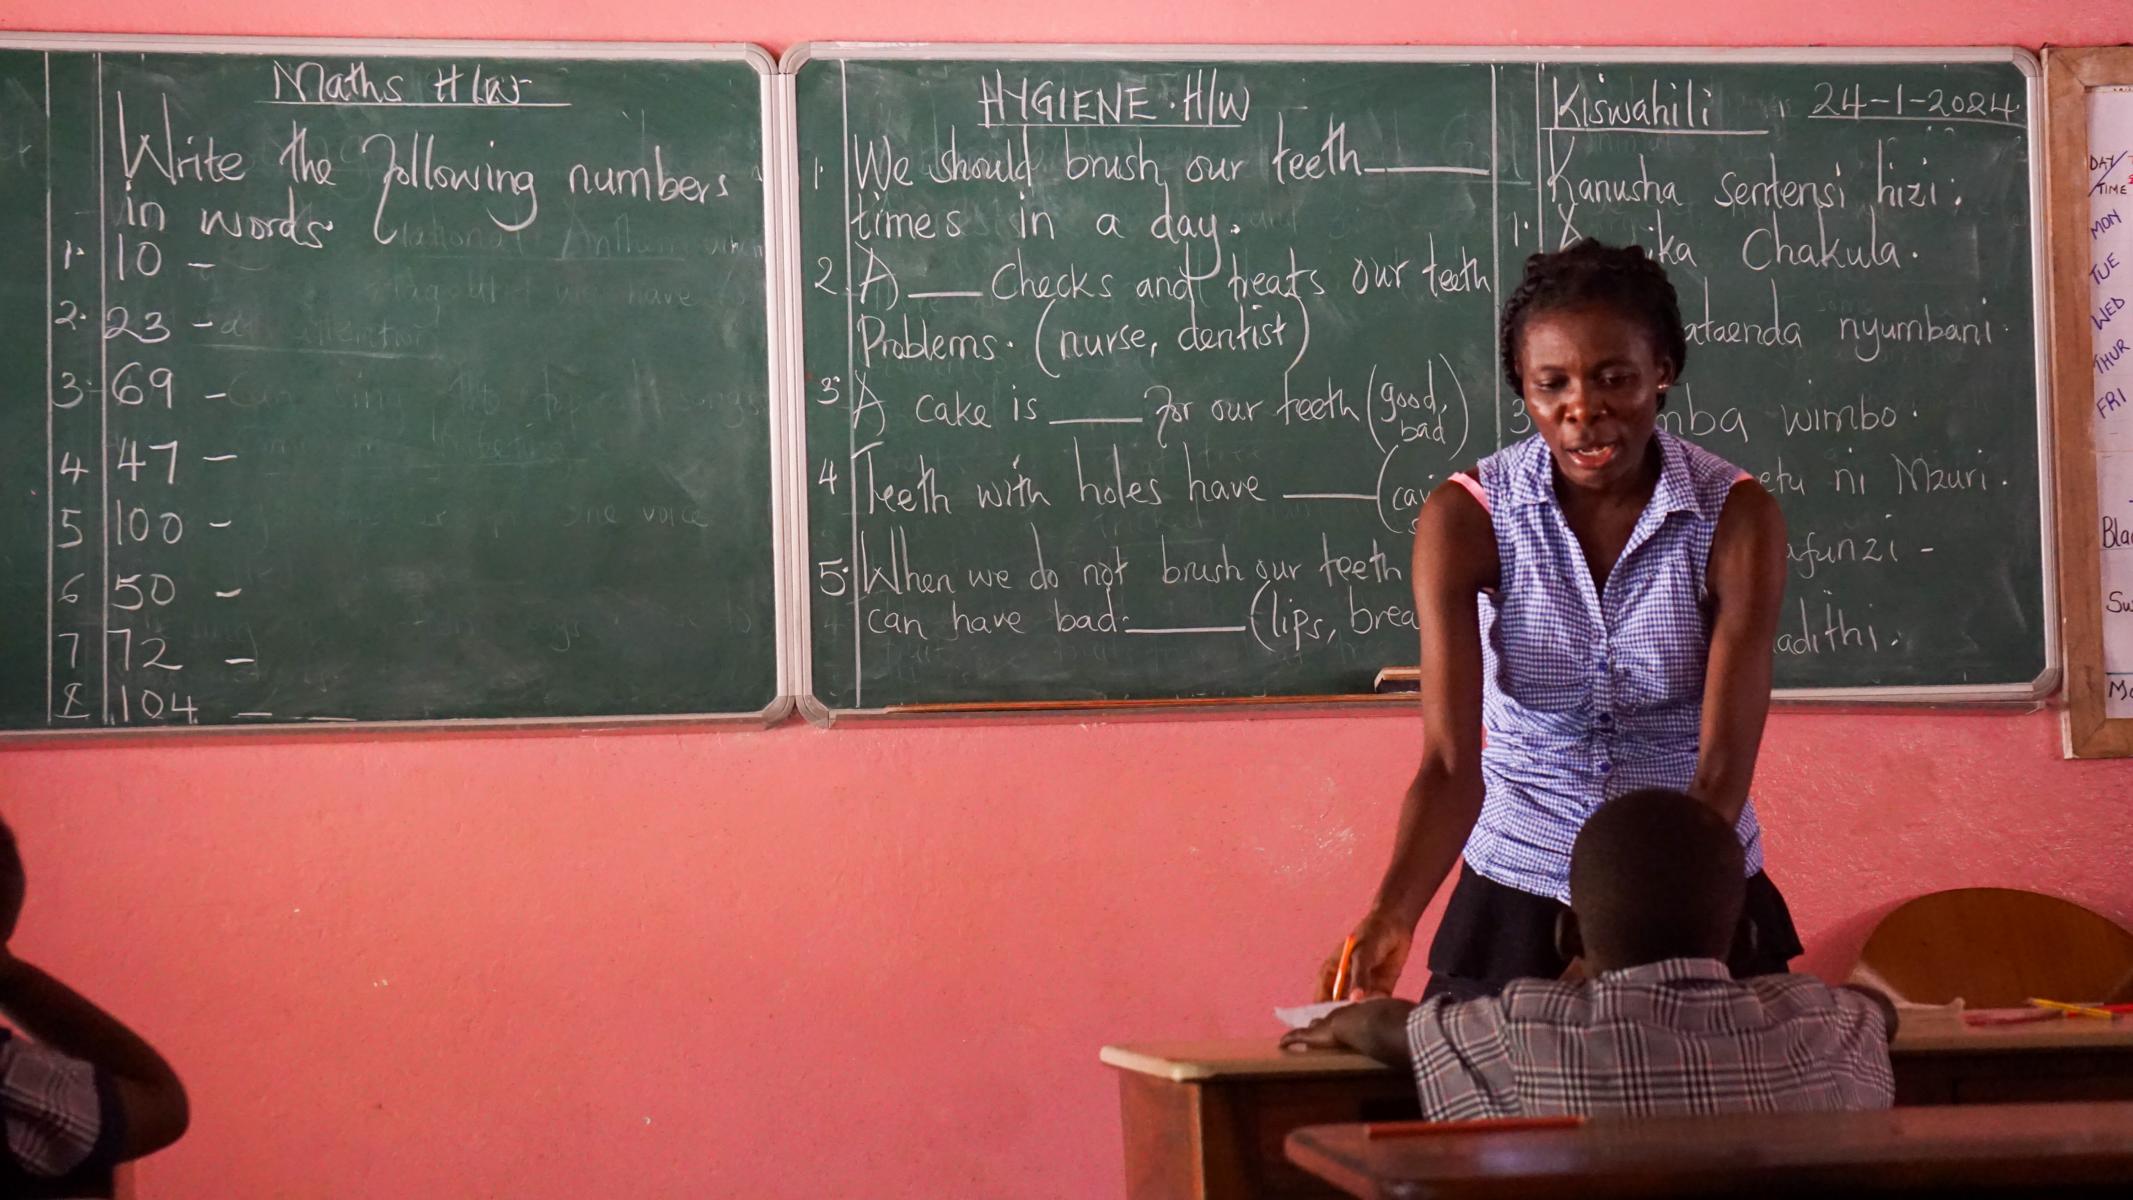 Maths H/W
Write the following numbers
in words.
1. 10 -
2. 23 -
3. 69 -
4 47 -
5 100 -
6 50 -
7 72 -
8 104 - -
HYGIENE . H/W
1. We should brush our teeth ______
times in a day.
2. A ___ checks and treats our teeth
Problems. (nurse, dentist)
3. A cake is ____ for our teeth (good,
bad)
4 Teeth with holes have ____
5. When we do not brush our teeth
can have bad: _____ (lips,
Kiswahili 24-1-2024
Kanusha sentensi hizi:
1. Chakula.
nyumbani.
3 wimbo.
ni Mzuri.
DAY/
TIME
MON
TUE
WED
THUR
FRI